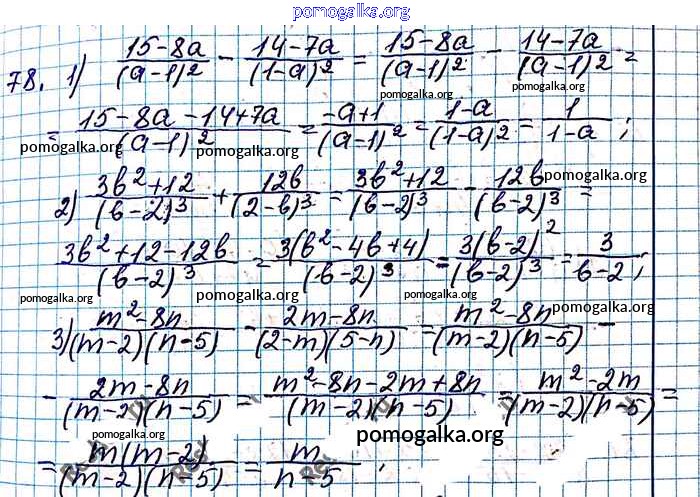 pomogalka.org
78. 1) (15-8a)/(a-1)² - (14-7a)/(1-a)² = (15-8a)/(a-1)² - (14-7a)/(a-1)² =
pomogalka.org
= (15-8a-14+7a)/(a-1)² = (-a+1)/(a-1)² = (1-a)/(1-a)² = 1/(1-a);
pomogalka.org pomogalka.org pomogalka.org
2) (3b²+12)/(b-2)³ + 12b/(2-b)³ = (3b²+12)/(b-2)³ - 12b/(b-2)³ =
pomogalka.org
(3b²+12-12b)/(b-2)³ = 3(b²-4b+4)/(b-2)³ = 3(b-2)²/(b-2)³ = 3/(b-2);
pomogalka.org pomogalka.org pomogalka.org pomogalka.org
3) (m²-8n)/((m-2)(n-5)) - (2m-8n)/((2-m)(5-n)) = (m²-8n)/((m-2)(n-5)) -
- (2m-8n)/((m-2)(n-5)) = (m²-8n-2m+8n)/((m-2)(n-5)) = (m²-2m)/((m-2)(n-5)) =
pomogalka.org pomogalka.org
= m(m-2)/((m-2)(n-5)) = m/(n-5);